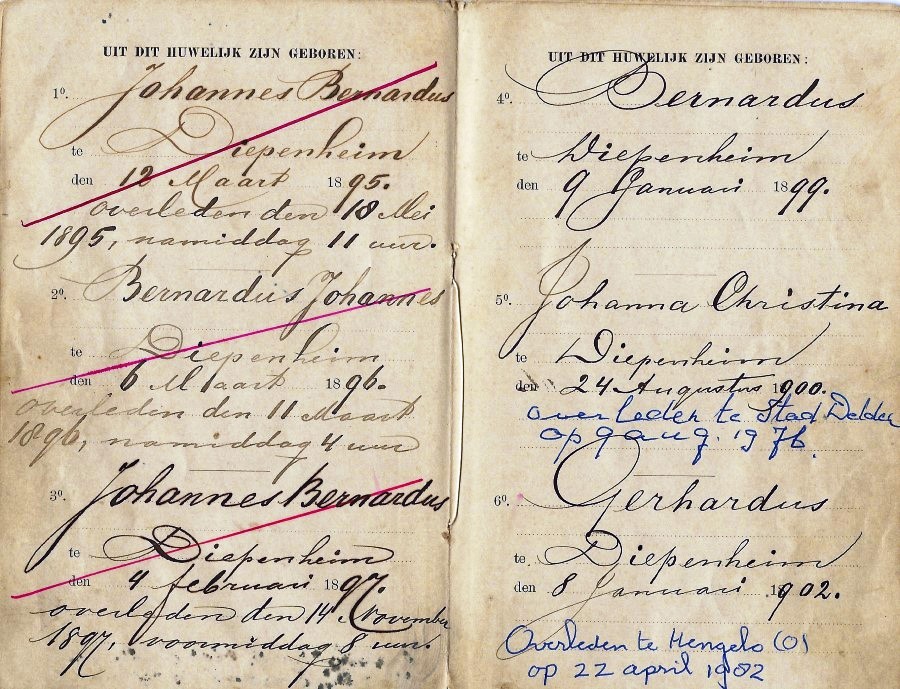 UIT DIT HUWELIJK ZIJN GEBOREN:
1º. Johannes Bernardus
te Diepenheim
den 12 Maart 1895.
overleden den 18 Mei
1895, namiddag 11 uur.
2º. Bernardus Johannes
te Diepenheim
den 6 Maart 1896.
overleden den 11 Maart
1896, namiddag 4 uur
3º. Johannes Bernardus
te Diepenheim
den 4 februari 1897.
overleden den 14 November
1897, voormiddag 8 uur.
UIT DIT HUWELIJK ZIJN GEBOREN:
4º. Bernardus
te Diepenheim
den 9 Januari 1899.
5º. Johanna Christina
te Diepenheim
den 24 Augustus 1900.
overleden te Stad Delden
op 9 aug. 1976.
6º. Gerhardus
te Diepenheim
den 8 Januari 1902.
Overleden te Hengelo (O)
op 22 april 1982